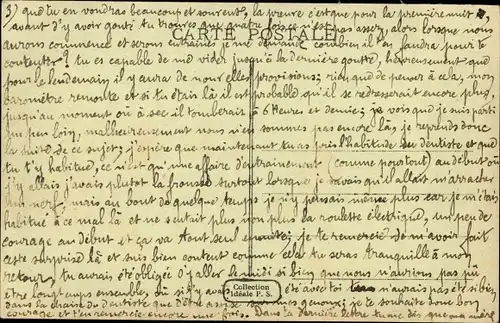 3) que tu en voudras beaucoup et souvent, la preuve c'est que pour la première nuit
avant d'y avoir goûté tu trouves que quatre fois pas assez alors lorsque nous
CARTE POSTALE
aurons commencé et serons entraînés je me demande combien il en faudra pour te
contenter? tu es capable de me vider jusqu'à la dernière goutte, heureusement que
pour le lendemain il y aura de nouvelles provisions; rien que de penser à cela, mon
baromètre remonte et si tu étais là il est probable qu'il se redresserait encore plus,
jusqu'au moment où à sec il tomberait à 6 heures et demie; je vois que je suis parti
un peu loin, malheureusement nous n'en sommes pas encore là, je reprends donc
la suite de ce sujet; j'espère que maintenant tu as pris l'habitude du dentiste et que
tu t'y habitue, ce n'est qu'une affaire d'entraînement (comme pour tout) au début où
j'y allais j'avais plutôt la frousse surtout lorsque je savais qu'il allait m'arracher
un nerf, mais au bout de quelque temps je n'y pensais même plus car je m'étais
habitué à ce mal là et ne sentait plus non plus la roulette électrique, un peu de
courage au début et ça va tout seul ensuite; je te remercie de m'avoir fait
cette surprise là et suis bien content comme cela tu seras tranquille à mon
retour, tu aurais été obligée d'y aller le midi si bien que nous n'aurions pas pu
être longtemps ensemble, où s'il y avait été avec toi tu n'aurais pas été si bien
dans la chaise du dentiste que d'être assise sur mes genoux; je te souhaite donc bon
courage et t'en remercie encore une fois. Dans ta dernière lettre tu me dis que
Collection
Idéale P. S.